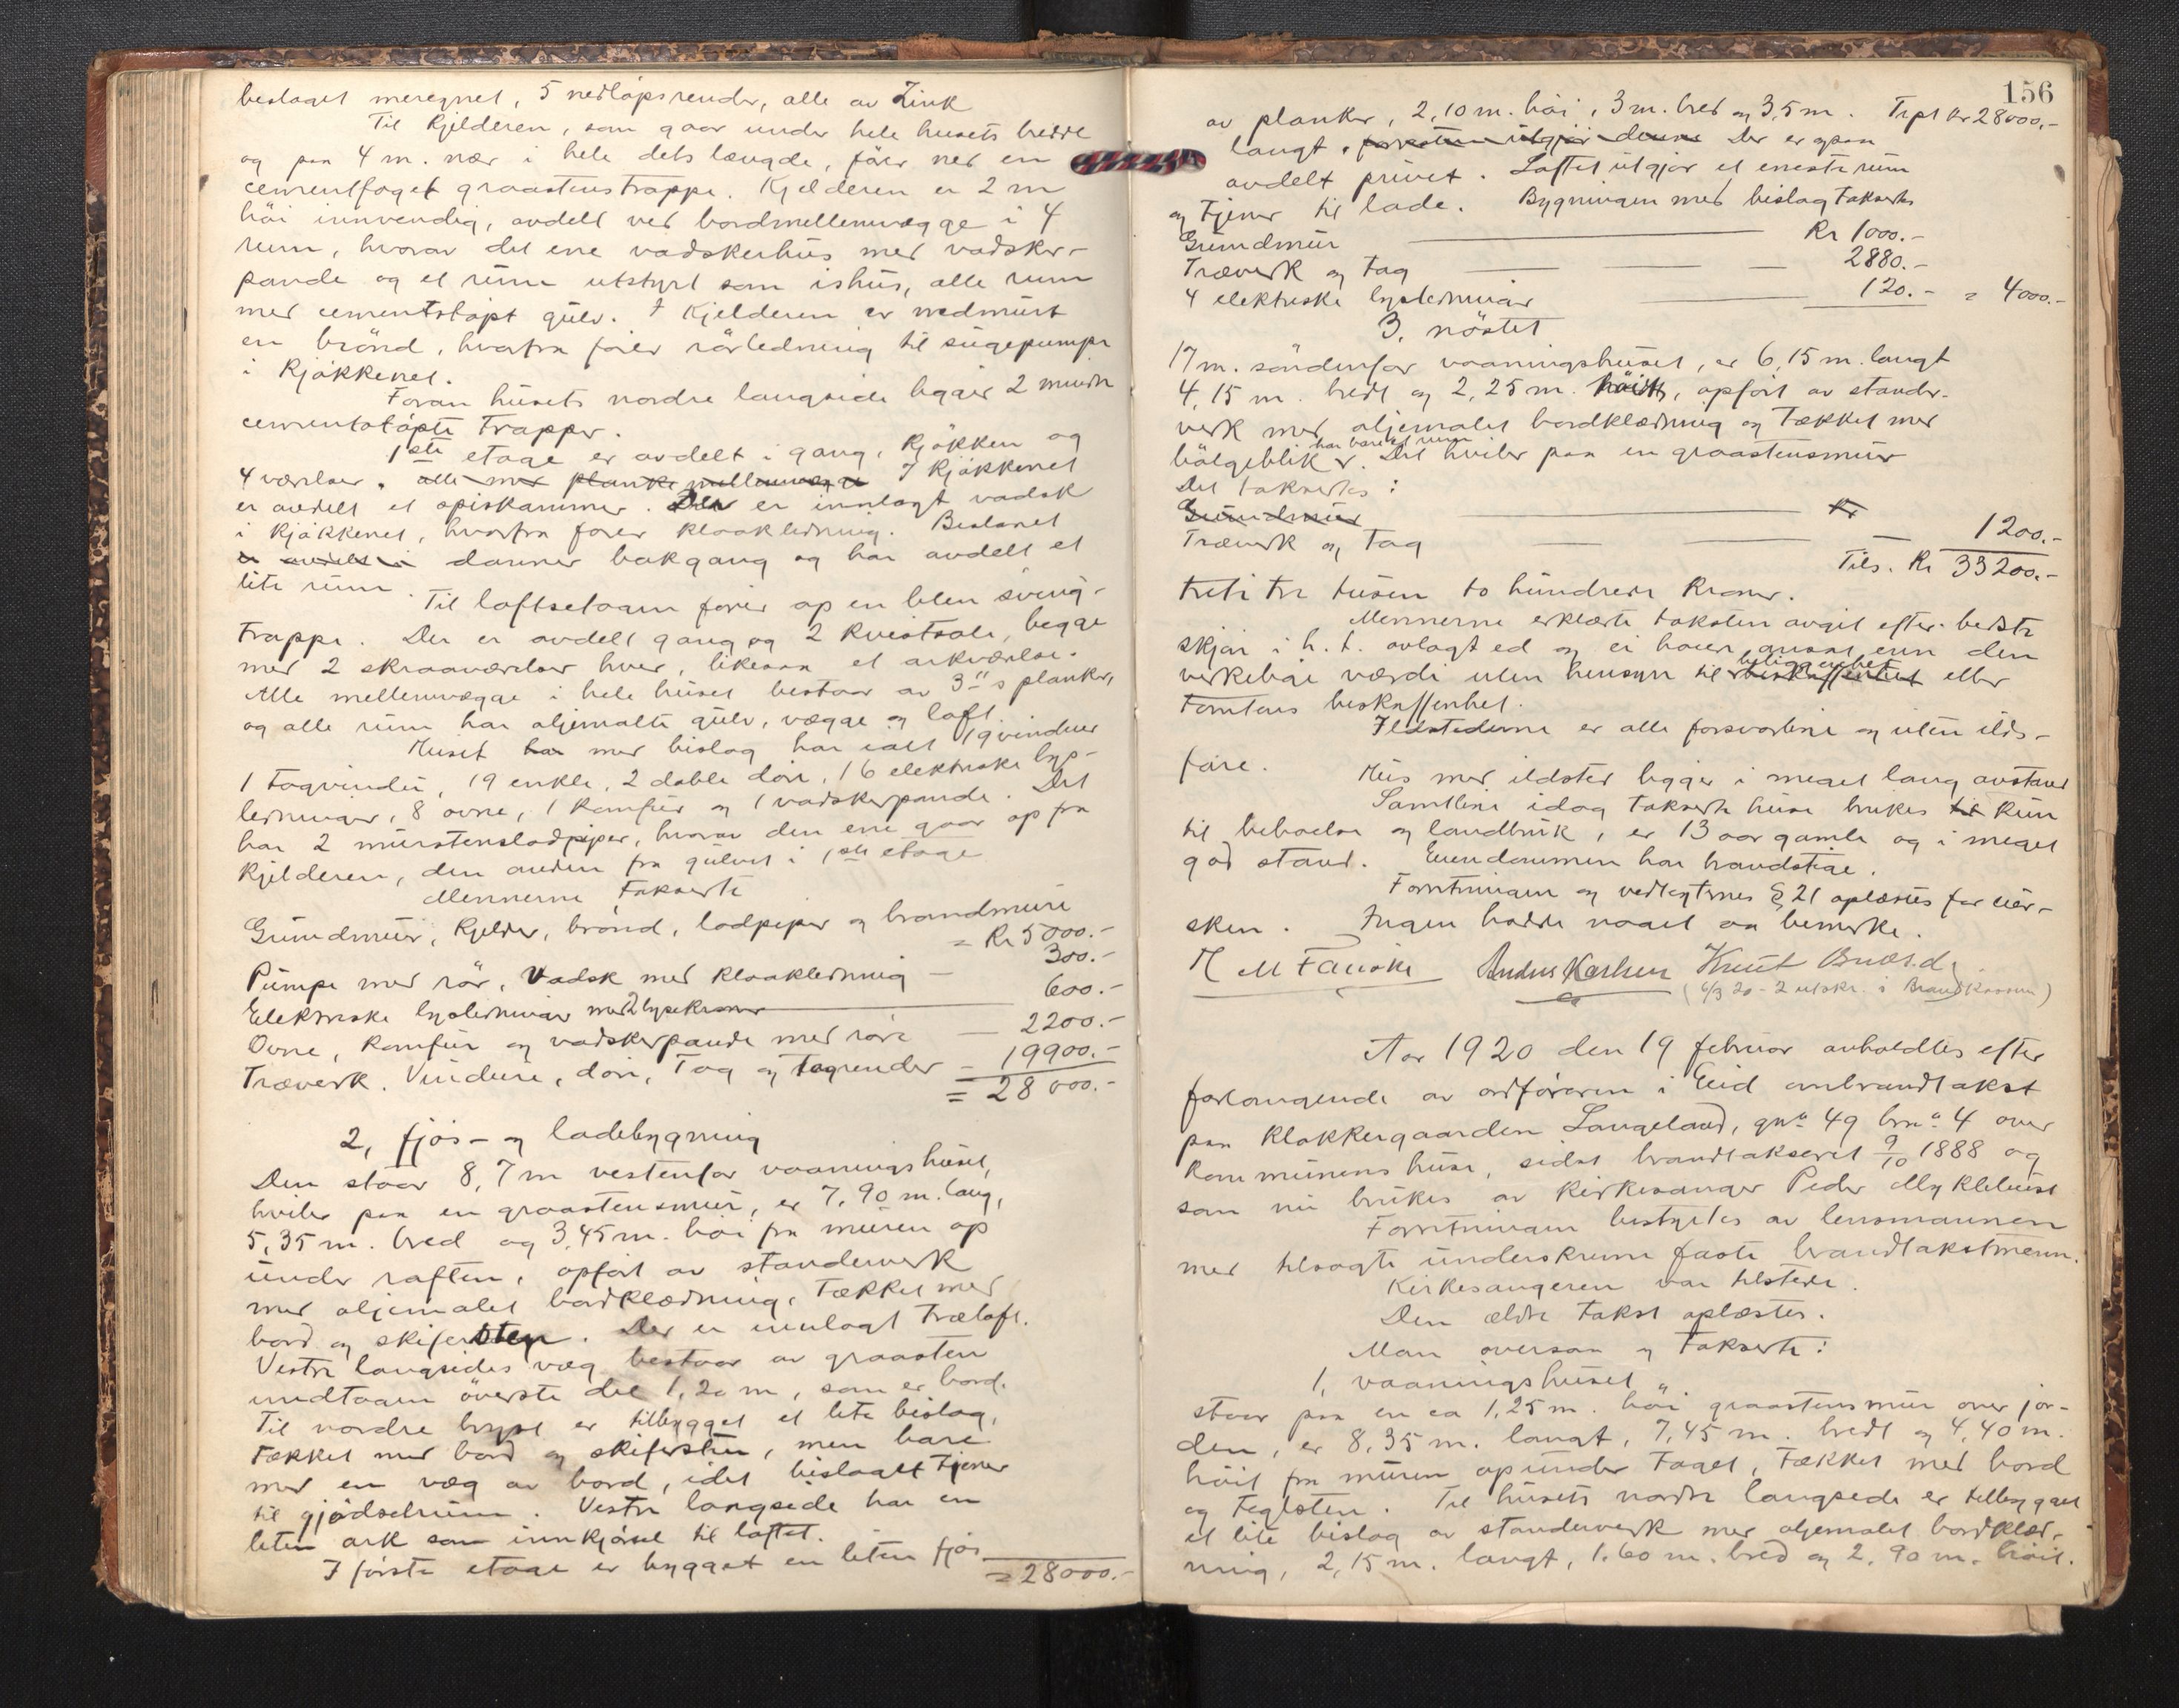 beslaget meregnet, 5 nedlöpsrender, alle av Zink
Til Kjelderen, som gaar under hele husets bredde
og paa 4 m. nær i hele dets længde, förer ned en
cementfuget graastenstrappe. Kjelderen er 2 m
höi innvendig, avdelt ved bordmellemvægge i 4
rum, hvorav det ene vadskerhus med vadsker-
pande og et rum utstyrt som ishus, alle rum
med cementstöpt gulv. I Kjelderen er nedmurt
en brönd, hvorfra förer rörledning til sugepumpe
i Kjökkenet.
Foran husets nordre langside ligger 2 mindre
cementstöpte trapper.
1ste etage er avdelt i gang, Kjökken og
4 værelser. alle med planke mellemvægge I Kjökkenet
er avdelt et spiskammer. Der er innlagt vadsk
i Kjökkenet, hvorfra förer kloakledning. Beslaget
er avdelt i danner bakgang og har avdelt et
lite rum.
Til loftsetagen förer op en liten sving-
trappe. Der er avdelt gang og 2 Kvistsale, begge
med 2 skraaværelser hver, likesaa et arkværelse.
Alle mellemvægge i hele huset bestaar av 3"s planker,
og alle rum har oljemalte gulv, vægge og loft.
Huset har med bislag har ialt 19 vinduer
1 tagvindu, 19 enkle, 2 doble döre, 16 elektriske lys-
ledninger, 8 ovne, 1 Komfur og 1 vadskerpande. Det
har 2 murstenslodpiper, hvorav den ene gaar op fra
Kjelderen, den anden fra gulvet i 1ste etage
Mennerne takserte
Grundmur, Kjelder, brönd, lodpiper og brandmure
= Kr 5000.-
Pumpe med rör, Vadsk med Kloakledning — 300.-
Elektriske lysledninger med lysekroner — 600.-
Ovne, Komfur og vadskerpande med röre — 2200.-
Træverk. Vinduer, döre, Tag og tagrender — 19900.-
= 28000.-
2, fjös- og ladebygning
Den staar 8,7 m vestenfor vaaningshuset,
hviler paa en graastensmur, er 7,90 m. lang,
5,35 m. bred og 3,45 m. höi fra muren op
under raften, opfört av standerverk
med oljemalet bordklædning, tækket med
bord og skifersten. Der er innlagt træloft.
Vestre langsides væg bestaar av graasten
undtagen överste del 1,20 m, som er bord.
Til nordre bryst er tilbygget et lite bislag,
tækket med bord og skifersten, men bare
med en væg av bord, idet bislaget tjener
til gjödselrum. Vestre langside har en
liten ark som innkjörsel til loftet.
I förste etage er bygget en liten fjös
= 28000.-
156
av planker, 2,10 m. höi, 3 m. bred og 3,5 m. Trpt Kr 28000.-
langt. forresten utgjör denne Der er ogsaa
avdelt privet. Loftet utgjör et eneste rum
og tjener til lade. Bygningen med bislag takserts
Grundmur — Kr 1000.-
Træverk og tag — 2880.-
4 elektriske lysledninger — 120.- = 4000.-
3, nöstet
17 m. söndenfor vaaningshuset, er 6,15 m. langt
4,15 m. bredt og 2,25 m. höit, opfört av stander-
verk med oljemalet bordklædning og tækket med
har bare et rum
bölgeblik. Det hviler paa en graastensmur
Det takserts:
Grundmur — Kr
Træverk og tag — 1200.-
Tils. Kr 33200.-
treti tre tusen to hundrede Kroner.
Mennerne erklærte taksten avgit efter bedste
skjön i h. t. avlagt ed og ei höiere ansat enn den
virkelige værdi uten hensyn til beliggenhet beskaffenhet eller
tomtens beskaffenhet.
Ildstederne er alle forsvarlige og uten ilds-
fare.
Hus med ildsted ligger i meget lang avstand
Samtlige idag takserte huse brukes til kun
til beboelse og landbruk, er 13 aar gamle og i meget
god stand. Eiendommen har brandstige.
Forretningen og vedtægternes § 21 oplæstes for eier-
sken. Ingen hadde noget aa bemerke.
H M Fauske Anders Karlsen Knut Bues.d.
(6/3 20 - 2 utskr. i Brandkassen)
Aar 1920 den 19 februar avholdtes efter
forlangende av ordföreren i Eid ombrandtakst
paa Klokkergaarden Langeland, gno 49 bno 4 over
Kommunens huse, sidst brandtakseret 9/10 1888 og
som nu brukes av Kirkesanger Peder Myklebust
Forretningen bestyrtes av lensmannen
med tilsagte underskrevne faste brandtakstmenn.
Kirkesangeren var tilstede.
Den ældre takst oplæstes.
Man oversaa og takserte:
1, vaaningshuset
staar paa en ca 1,25 m. höi graastensmur over jor-
den, er 8,35 m. langt, 7,45 m. bredt og 4,40 m.
höit fra muren op under taget, tækket med bord
og teglsten. Til husets nordre langside er tilbygget
et lite bislag av standerverk med oljemalet bordklæd-
ning, 2,15 m. langt, 1.60 m. bred og 2,90 m. höit.